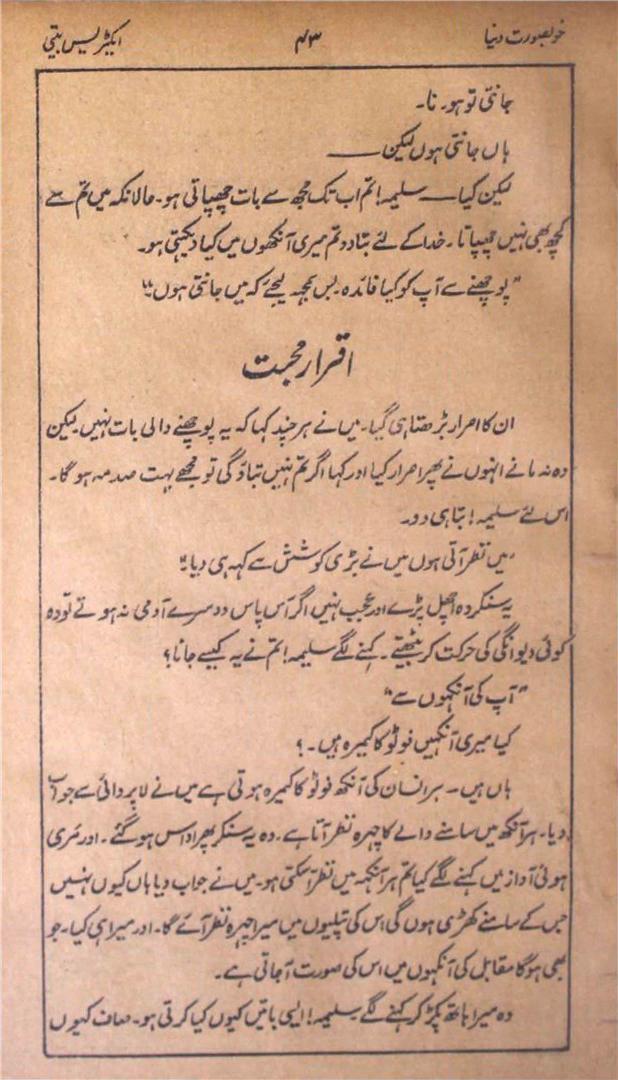 خوبصورت دنیا
۴۳
ایکٹریس بیتی
جانتی تو ہو۔ نا۔
ہاں جانتی ہوں لیکن ——
لیکن کیا —— سلیمہ! تم اب تک مجھ سے بات چھپاتی ہو۔ حالانکہ میں تم سے
کچھ بھی نہیں چھپاتا۔ خدا کے لئے بتا دو تم میری آنکھوں میں کیا دیکھتی ہو۔
"پوچھنے سے آپ کو کیا فائدہ۔ بس سمجھ لیجئے کہ میں جانتی ہوں"
اقرار محبت
ان کا اصرار بڑھتا ہی گیا۔ میں نے ہر چند کہا کہ یہ پوچھنے والی بات نہیں لیکن
وہ نہ مانے انہوں نے پھر اصرار کیا اور کہا اگر تم نہیں بتاؤ گی تو مجھے بہت صدمہ ہو گا۔
اس لئے سلیمہ! بتا ہی دو۔
"میں نظر آتی ہوں میں نے بڑی کوشش سے کہہ ہی دیا"
یہ سنکر وہ اچھل پڑے اور عجب نہیں اگر آس پاس دوسرے آدمی نہ ہوتے تو وہ
کوئی دیوانگی کی حرکت کر بیٹھتے۔ کہنے لگے سلیمہ! تم نے یہ کیسے جانا؟
"آپ کی آنکھوں سے"
کیا میری آنکھیں فوٹو کا کیمرہ ہیں۔؟
ہاں ہیں۔ ہر انسان کی آنکھ فوٹو کا کیمرہ ہوتی ہے میں نے لاپروائی سے جواب
دیا۔ ہر آنکھ میں سامنے والے کا چہرہ نظر آتا ہے۔ وہ یہ سنکر پھر اداس ہو گئے۔ اور مری
ہوئی آواز میں کہنے لگے کیا تم ہر آنکھ میں نظر آ سکتی ہو۔ میں نے جواب دیا ہاں کیوں نہیں
جس کے سامنے کھڑی ہوں گی اس کی پتلیوں میں میرا چہرہ نظر آئے گا۔ اور میرا ہی کیا۔ جو
بھی ہو گا مقابل کی آنکھوں میں اس کی صورت آ جاتی ہے۔
وہ میرا ہاتھ پکڑ کر کہنے لگے سلیمہ! ایسی باتیں کیوں کیا کرتی ہو۔ صاف کیوں